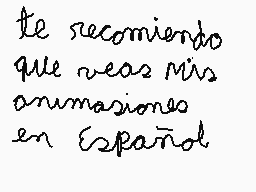 te recomiendo
que veas mis
animasiones
en Español